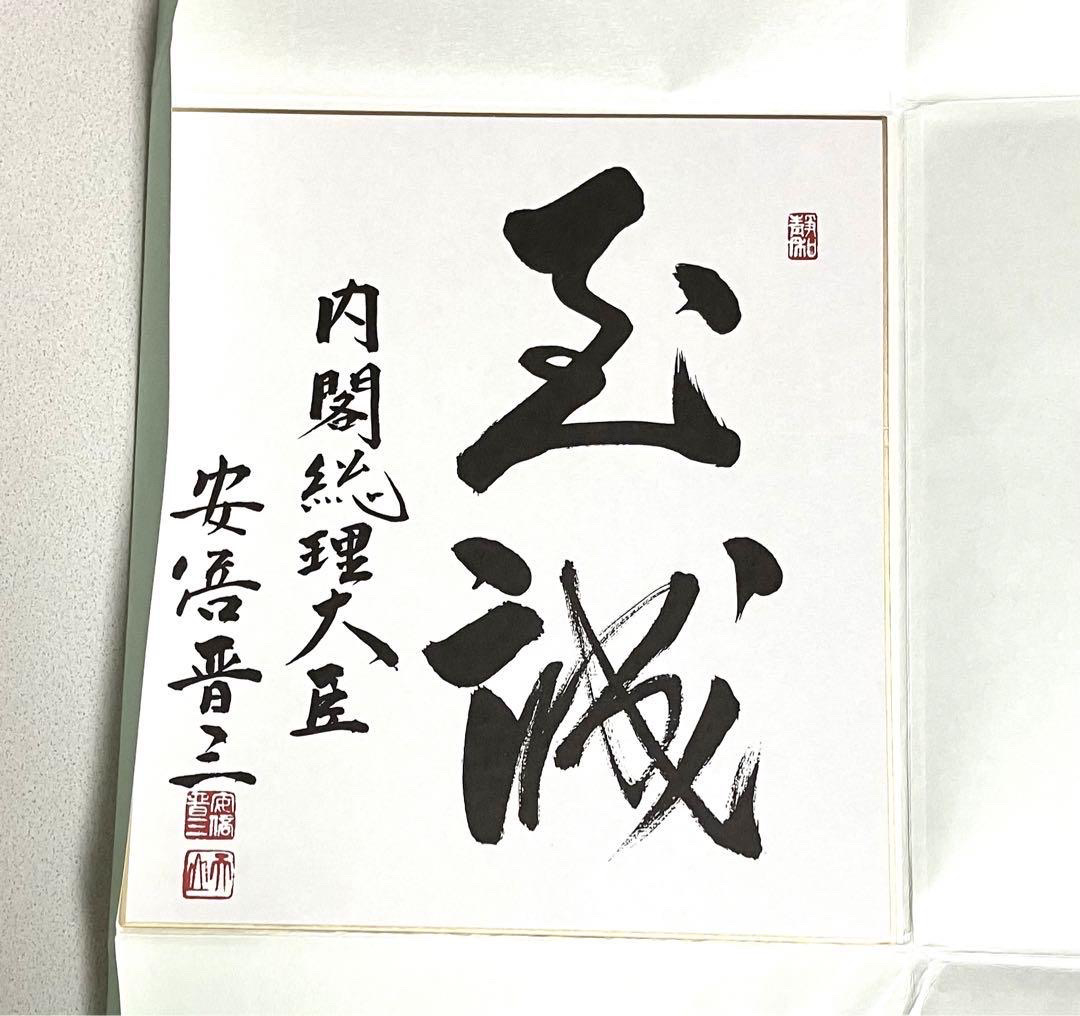 至誠
内閣総理大臣
安倍晋三
安倍晋三